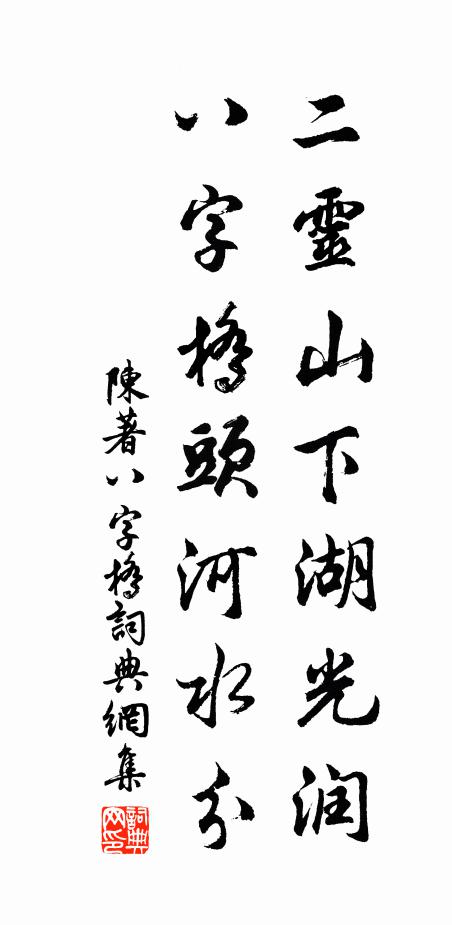 二靈山下湖光润
八字橋頭河水分
陳著八字橋詞典網集
詞典网印